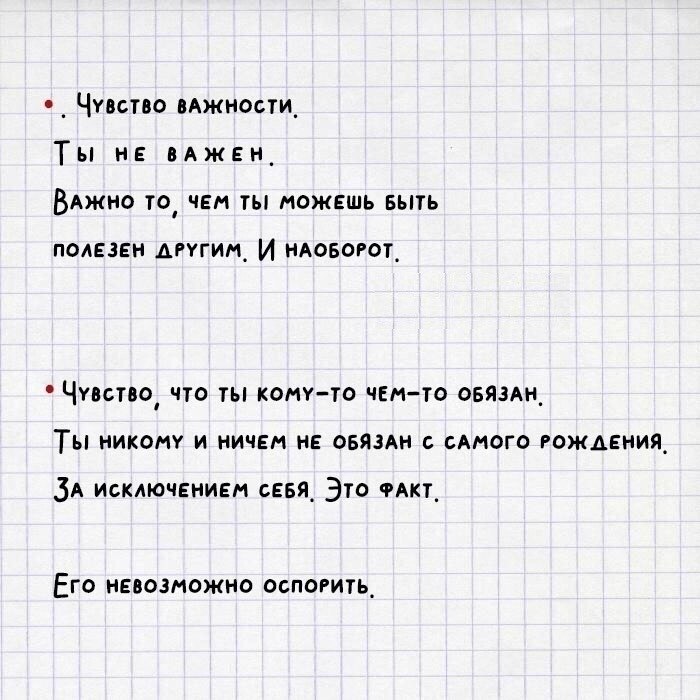 • . Чувство важности.
Ты не важен.
Важно то, чем ты можешь быть
полезен другим. И наоборот.
• Чувство, что ты кому-то чем-то обязан.
Ты никому и ничем не обязан с самого рождения.
За исключением себя. Это факт.
Его невозможно оспорить.